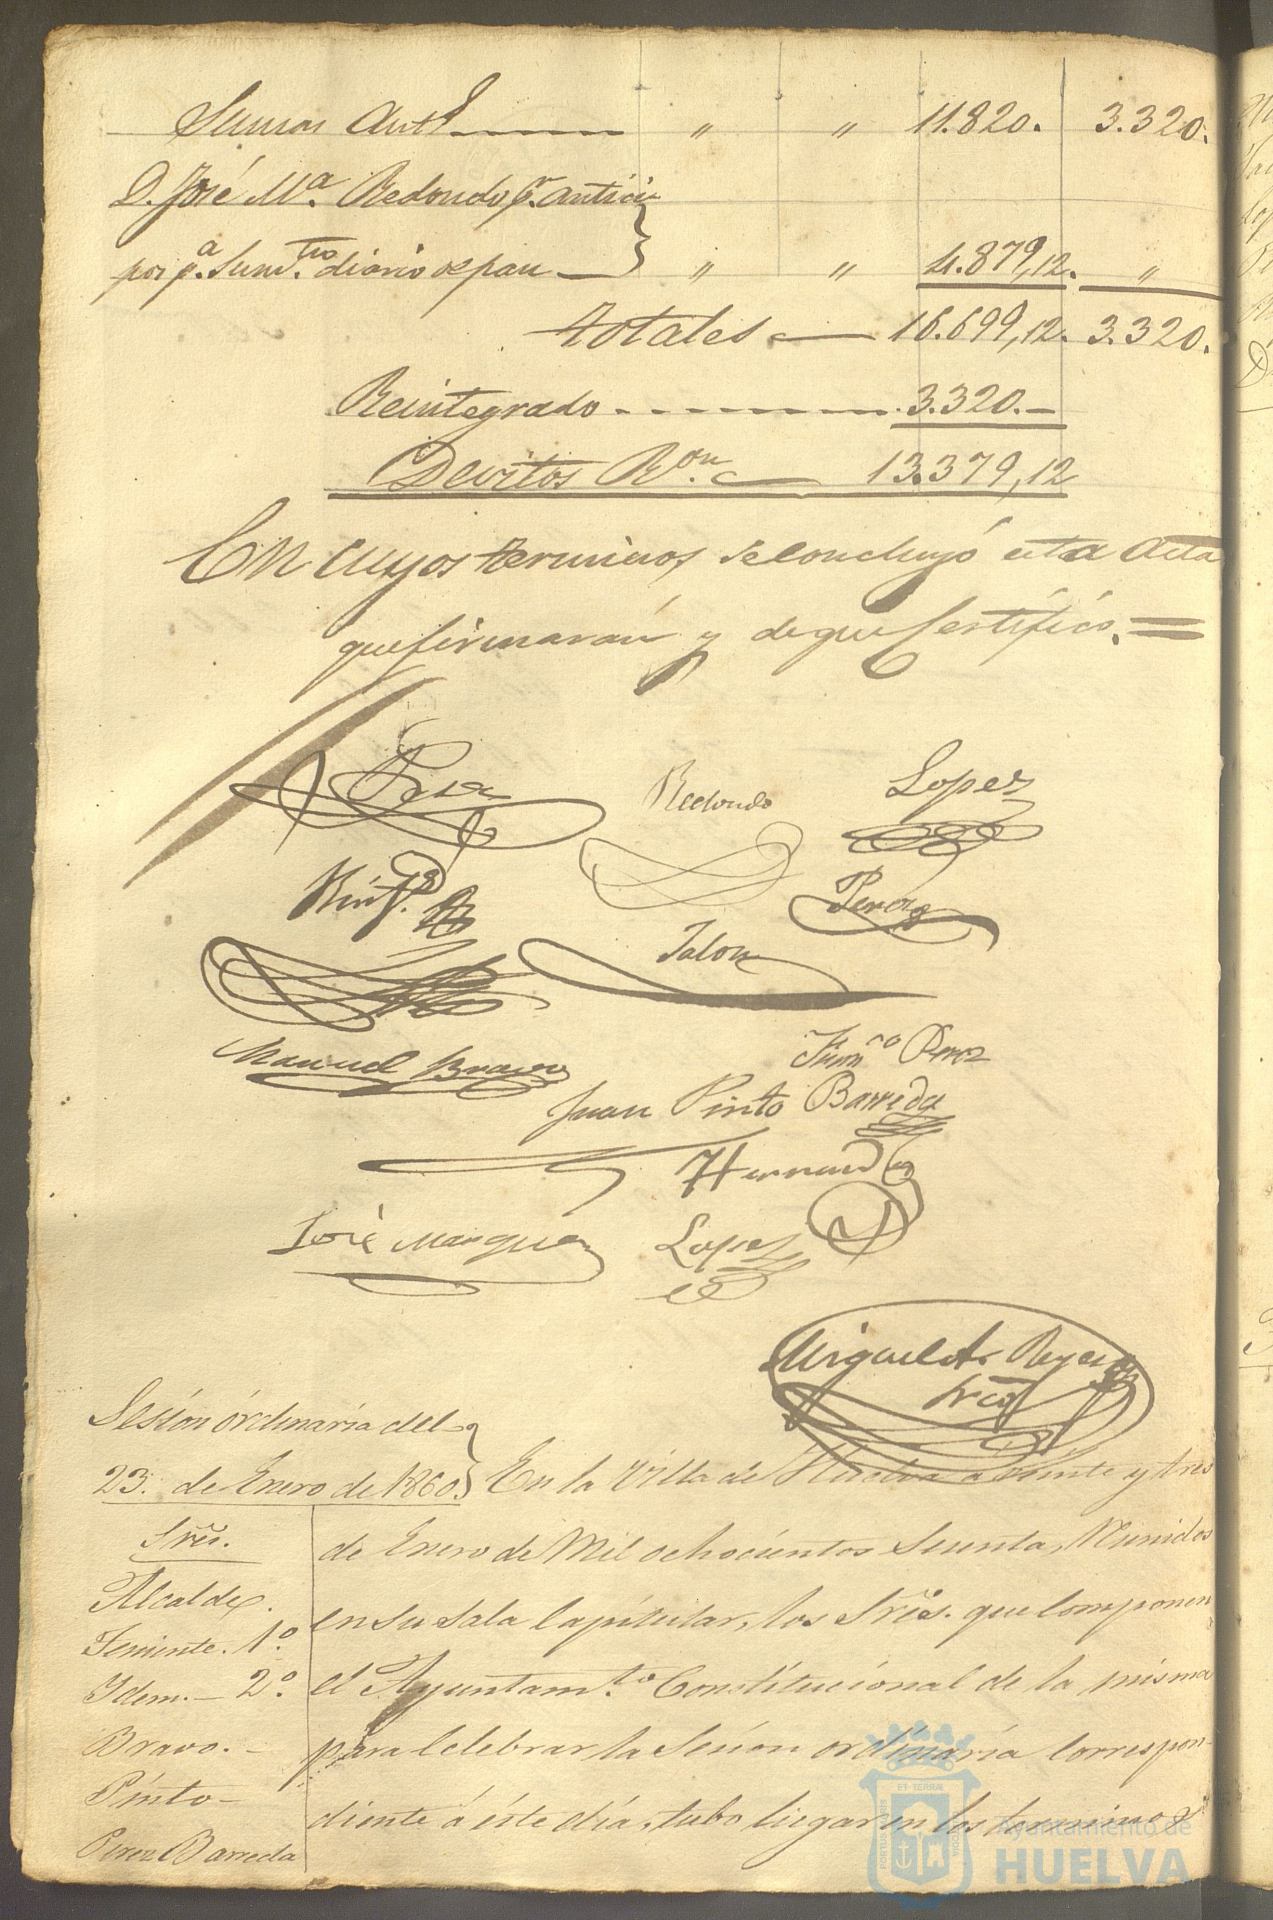 Sumas antes " " 11.820. 3.320.
D. José Mª. Redondo pr. antici-
por pª. Sumtros. diario de pan " " 4.879,12. "
Totales 16.699,12. 3.320.
Reintegrado 3.320.
Devitos Ron. 13.379,12
En cuyos terminos se concluyó esta Acta
que firmarán y de que Certifico. =
Redondo Lopez
Perez
Jalon
Manuel Bravo Franco Perez
Juan Pinto Barreda
Hernandez
José Marquez Lopez
Miguel A. Reyes
Srio
Sesión órdinaria del
23. de Enero de 1860. En la Villa de Huelva a veinte y tres
Sres. de Enero de Mil ochocientos Sesenta, Reunidos
Alcalde. en su Sala Capitular, los Sres. que componen
Teniente. 1º. el Ayuntamto. Constitucional de la misma
Idem.- 2º. para Celebrar la Sesion ordinaria correspon-
Bravo.- diente á éste dia, tubo lugar en los terminos
Pinto-
Perez Barreda
ET TERRÆ
Ayuntamiento de
HUELVA